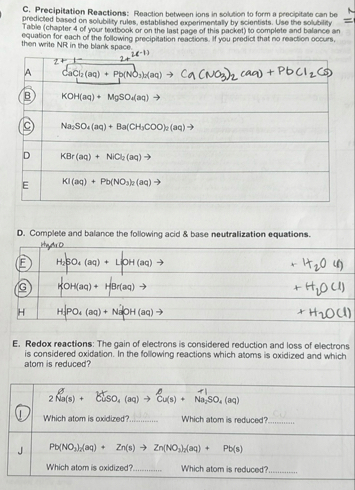 C. Precipitation Reactions: Reaction between ions in solution to form a precipitate can be
predicted based on solubility rules, established experimentally by scientists. Use the solubility
Table (chapter 4 of your textbook or on the last page of this packet) to complete and balance an
equation for each of the following precipitation reactions. If you predict that no reaction occurs,
then write NR in the blank space.
2+ 1- 2+ 2(-1)
A CaCl₂(aq) + Pb(NO₃)₂(aq) → Ca(NO₃)₂ (aq) + PbCl₂(s)
B KOH(aq) + MgSO₄(aq) →
C Na₂SO₄(aq) + Ba(CH₃COO)₂(aq) →
D KBr(aq) + NiCl₂(aq) →
E KI(aq) + Pb(NO₃)₂(aq) →
D. Complete and balance the following acid & base neutralization equations.
E H₂SO₄ (aq) + LiOH (aq) → + H₂O (l)
G KOH(aq) + HBr(aq) → + H₂O(l)
H H₃PO₄ (aq) + NaOH (aq) → + H₂O(l)
E. Redox reactions: The gain of electrons is considered reduction and loss of electrons
is considered oxidation. In the following reactions which atoms is oxidized and which
atom is reduced?
I 2 Na(s) + CuSO₄ (aq) → Cu(s) + Na₂SO₄ (aq)
Which atom is oxidized?............. Which atom is reduced?............
J Pb(NO₃)₂(aq) + Zn(s) → Zn(NO₃)₂(aq) + Pb(s)
Which atom is oxidized?............. Which atom is reduced?............